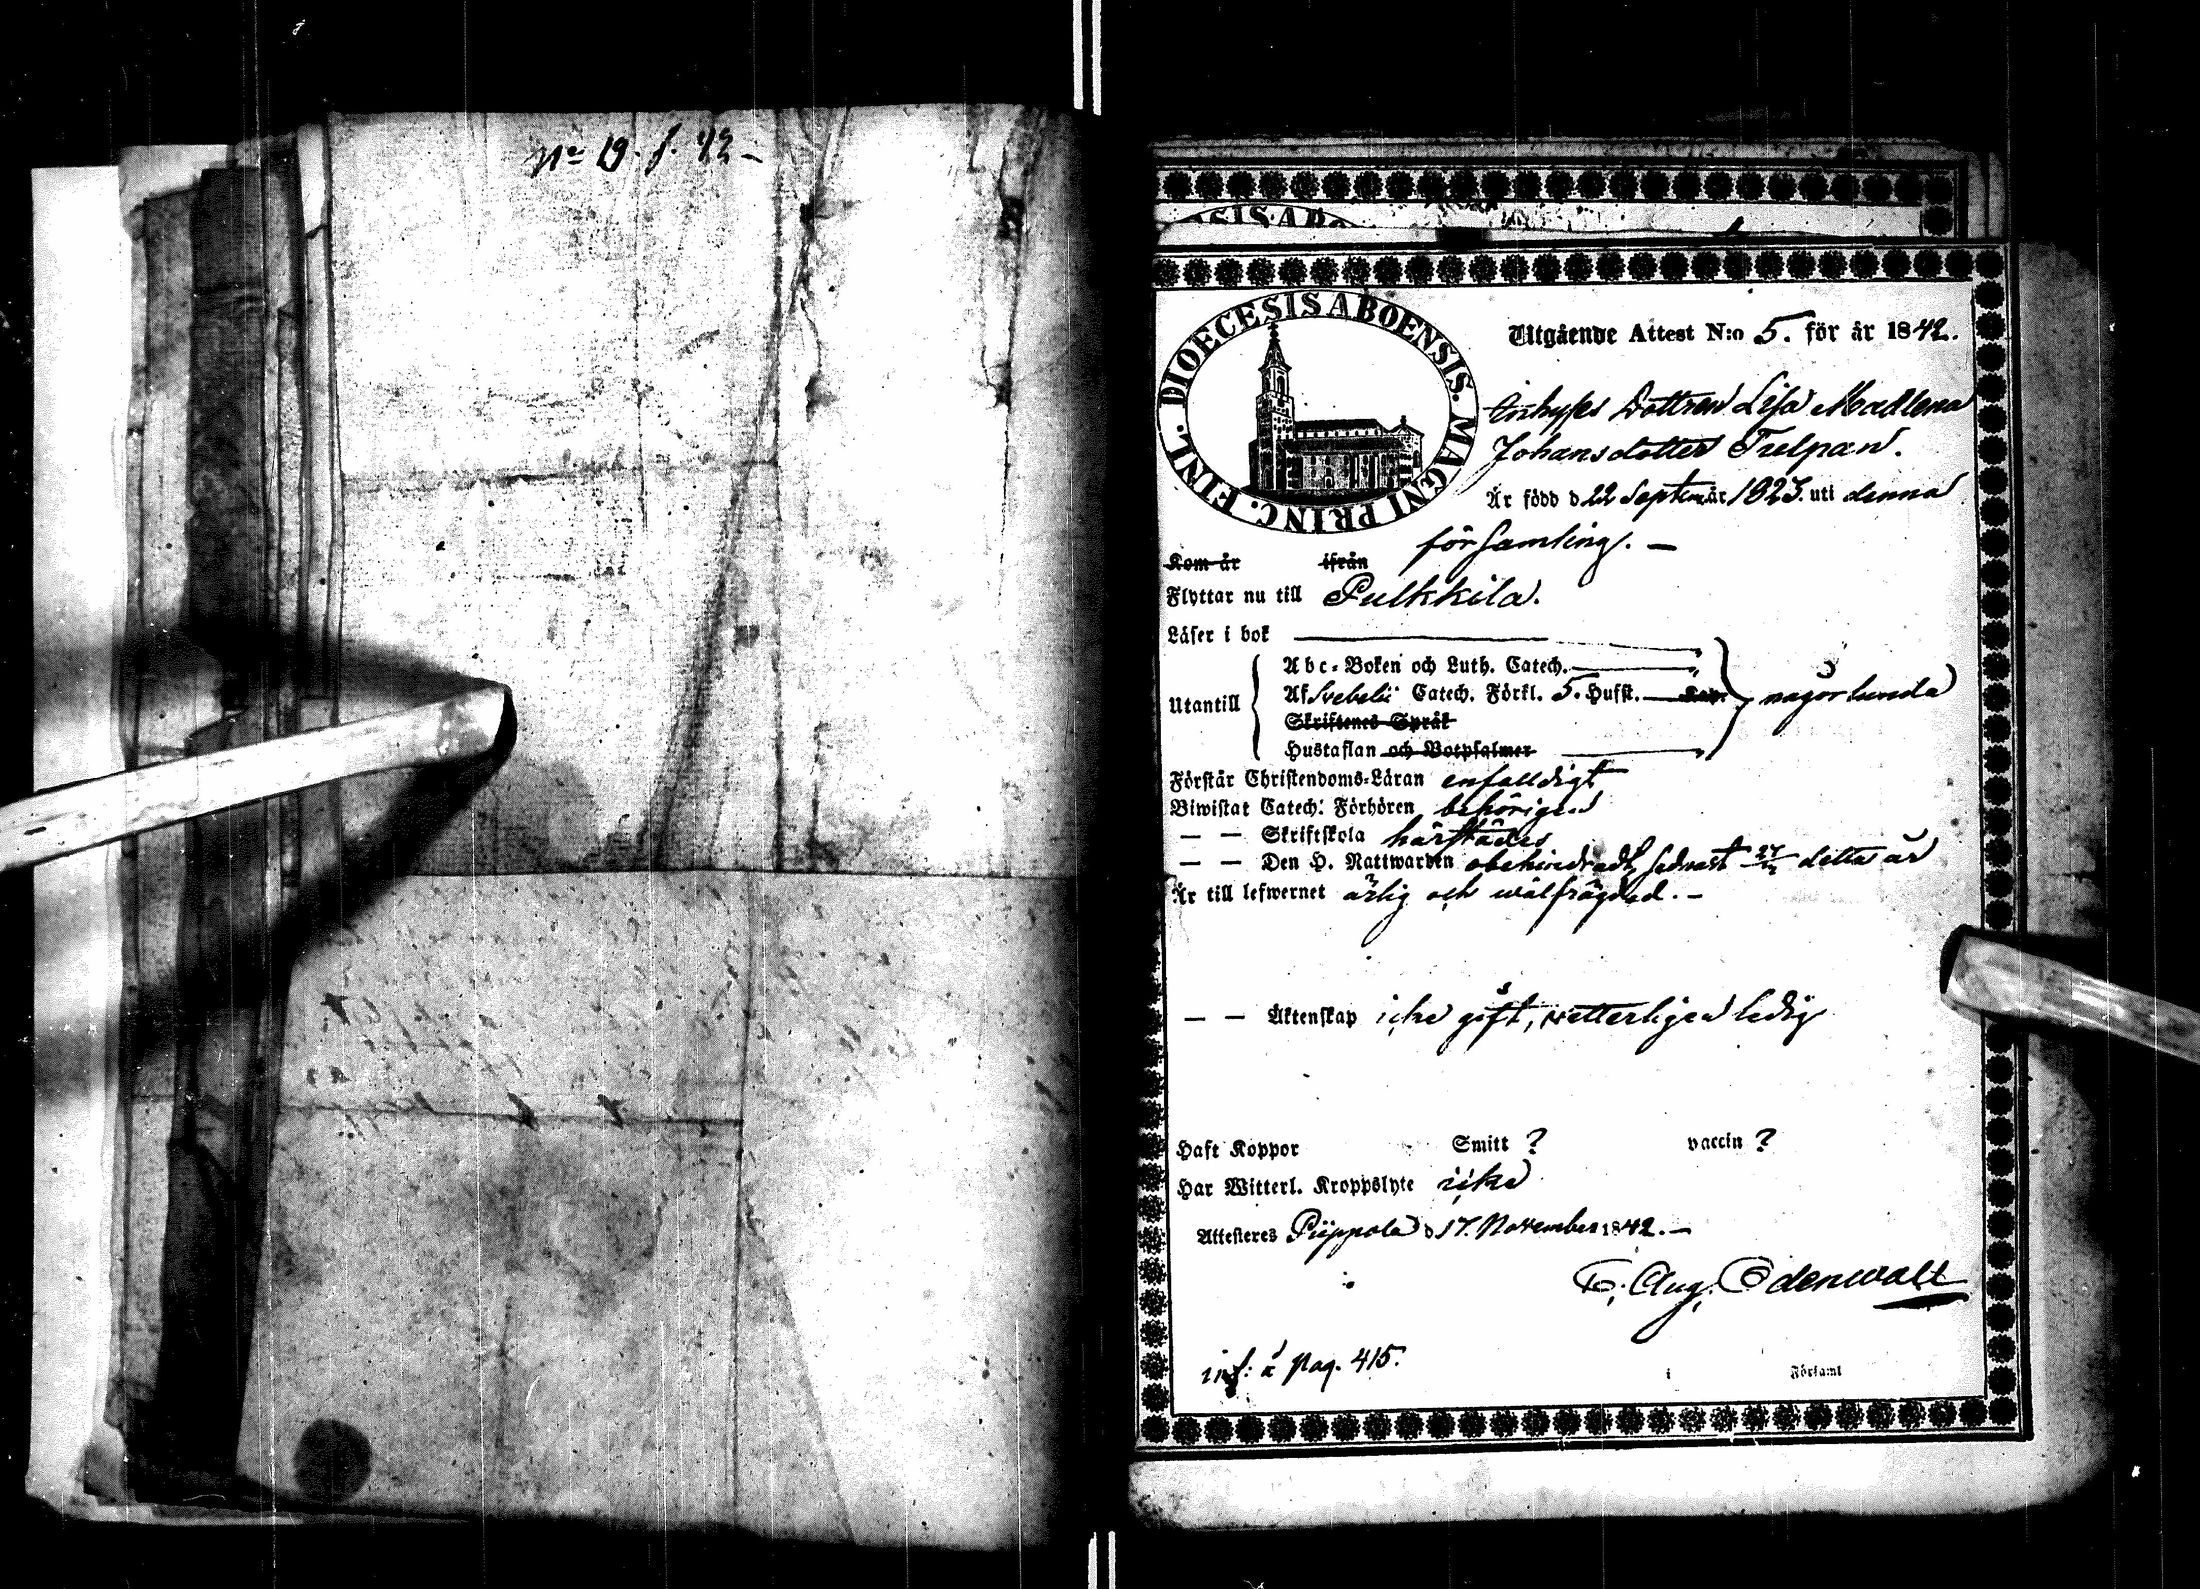 No 19. f. 42 –
SIS ABO
DIOECESIS ABOENSIS. MAGNI PRINC. FINL.
Utgående Attest N:o 5. för år 1842.
Inhyses Dottren Lisa Madlena
Johansdotter Tulpan.
Är född d 22 Septem år 1823. uti denna
församling. –
Kom år ifrån
Flyttar nu till Pulkkila.
Läser i bok
Abc-Boken och Luth. Catech.
Utantill Af Svebelii Catech. Förkl. 5. Hufst. Kap. någorlunda
Skriftenes Språk
Hustaflan och Botpsalmer
Förstår Christendoms-Läran enfalldigt
Biwistat Catech. Förhören behörigen
– – Skriftskola härstädes
– – Den H. Nattwarden obehindradt, sednast detta år
Är till lefwernet ärlig och wälfrägdad. –
– – Äktenskap icke gift, wetterligen ledig
Haft Koppor Smitt ? vaccin ?
Har Witterl. Kroppslyte icke
Attesteres Piippola d 17. November 1842. –
F. Aug. Odenwall
inf: á Pag. 415.
i Församl